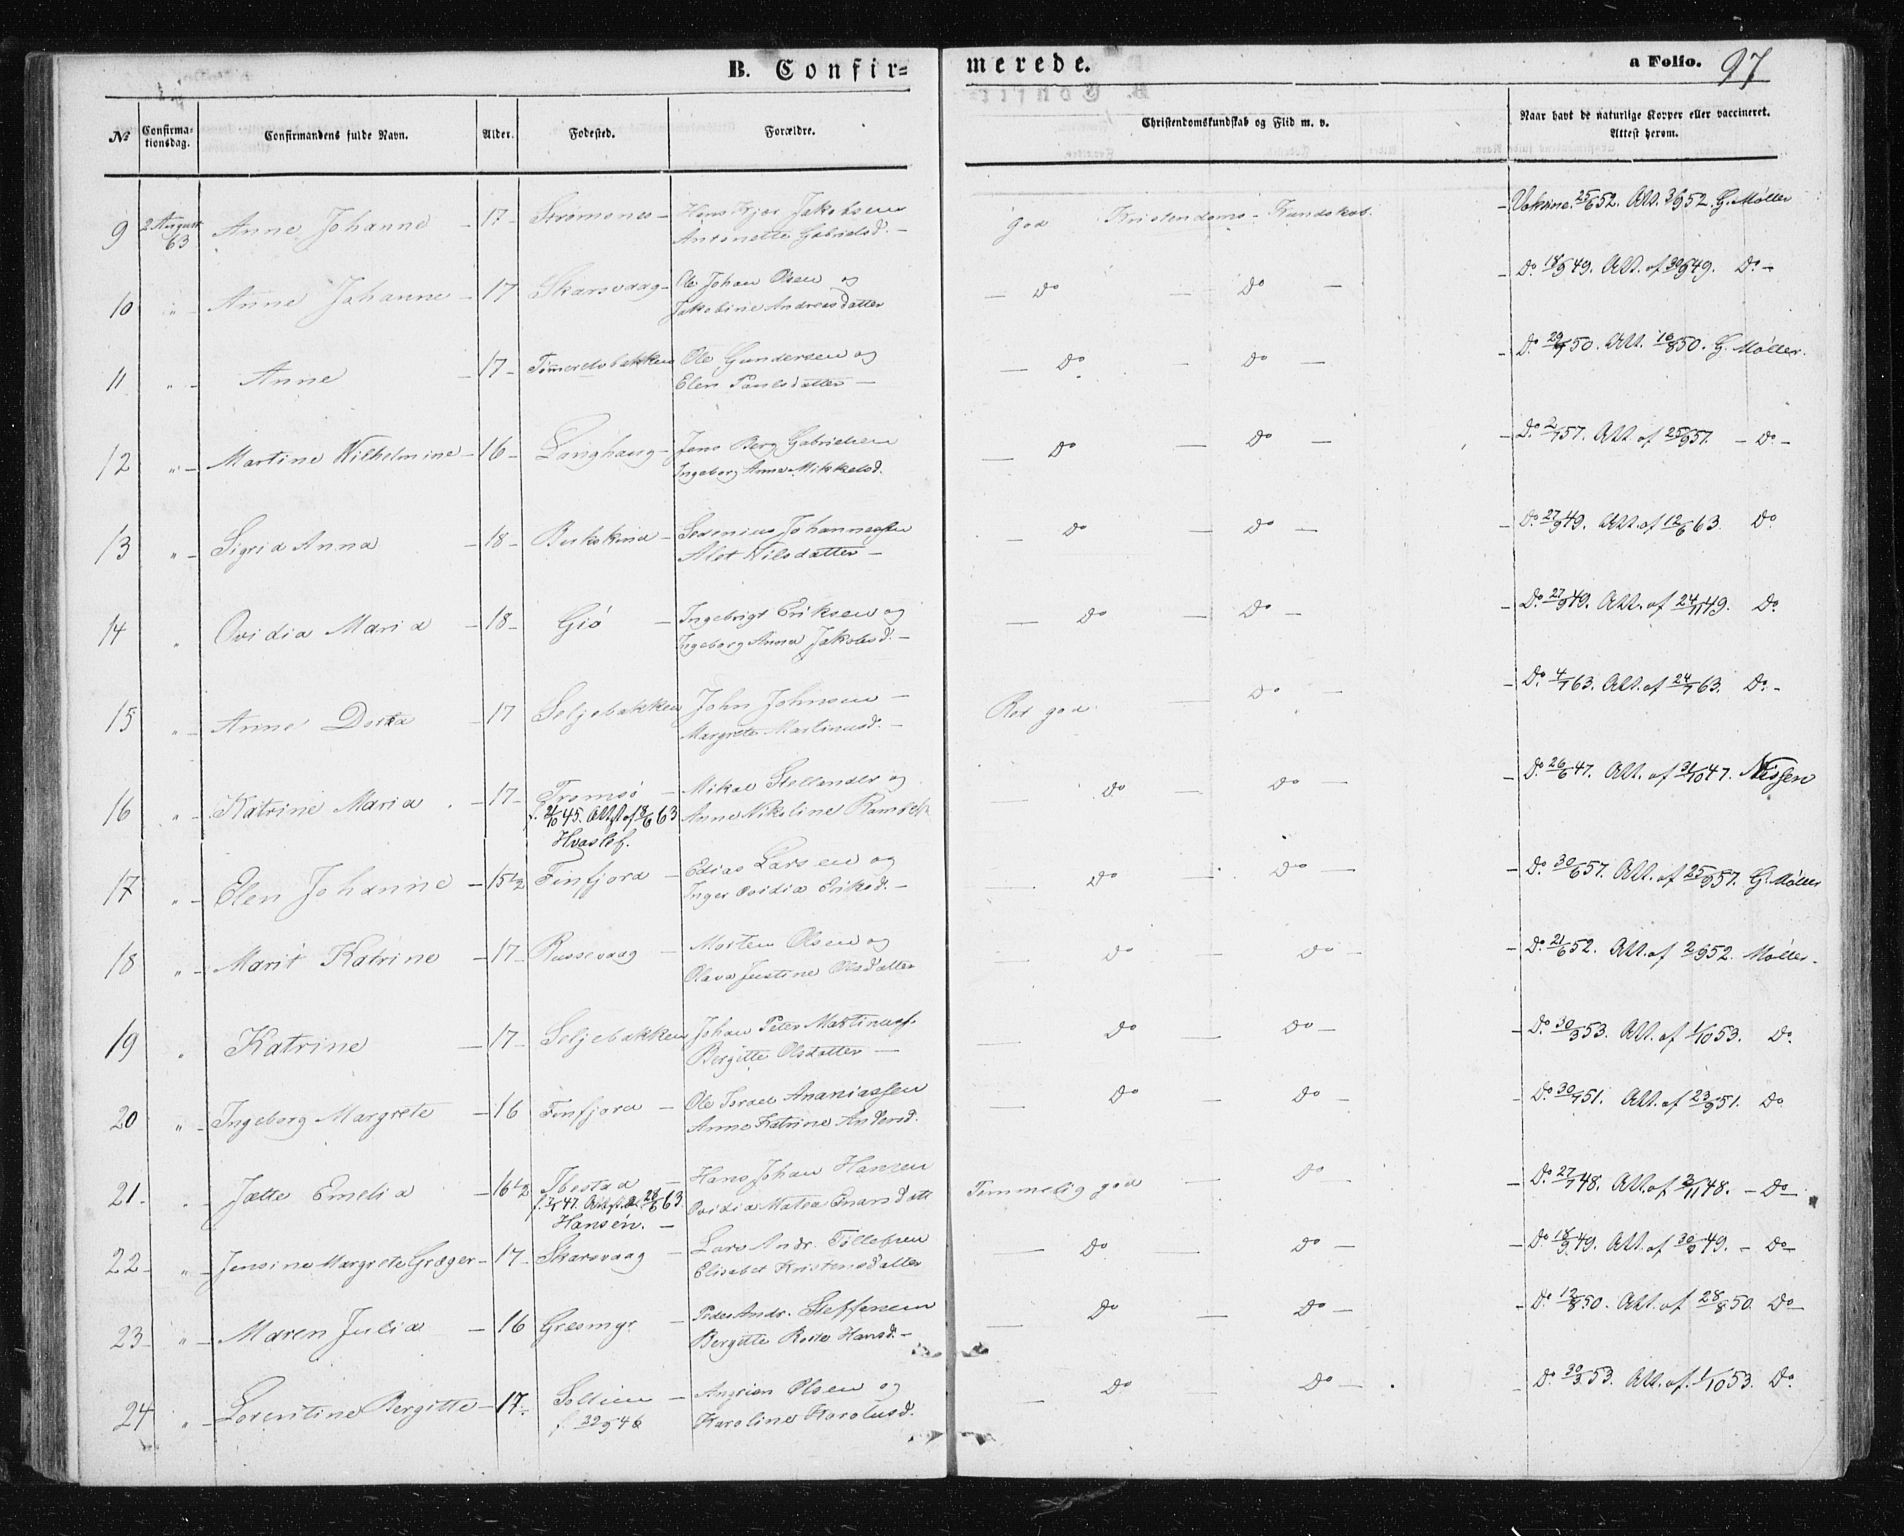 B. Confir= merede. a Folio. 97
№ Confirma-tionsdag. Confirmandens fulde Navn. Alder. Fodested. Forældre. Christendomskundskab og Flid m. v. Naar havt de naturlige Kopper eller vaccineret. Attest herom.
9 2 August 63 Anne Johanne - 17 - Strømsnes - Hans Kjær Jakobsen god Kristendoms - Kundskab. - Vaksine. 25/6 52. Att. 3/9 52. G. Møller
Antonette Gabrielsd. -
10 " - Anne Johanne - 17 Skarsvaag - Ole Johan Olsen og - Do - Do - - Do. 18/9 49. Att. af 30/9 49. Do -
Jakobine Andreasdatter
11 " - Anne - 17 - Tømmeråsbakken Ole Gundersen og - Do - Do - - Do. 29/7 50. Att. 10/8 50. G. Møller.
Elen Paulsdatter -
12 " - Martine Wilhelmine - 16 - Langhaug - Jens Berg Gabrielsen - Do - Do - - Do. 2/7 57. Att. af 25/9 57. - Do -
Ingeborg Anna Mikkelsd.
13 " - Sigrid Anna - 18 - Bukskind - Severius Johannessen - Do - Do - - Do. 27/9 49. Att. af 12/6 63. Do
Alet Nilsdatter -
14 " Ovidia Maria - 18 - Giø - Ingebrigt Eriksen og - Do - Do - - Do. 27/9 49. Att. af 24/11 49. Do.
Ingeborg Anna Jakobsd. -
15 " - Anne Dorta - 17 Seljebakken John Johnsen - Ret god. - Do - - Do. 4/7 63. Att. af 24/7 63. Do. -
Margrete Martinusd. -
16 " - Katrine Maria . - 17 - Tromsø - Mikal Stellander og - Do - Do - - Do. 26/6 47. Att. af 31/10 47. Nissen
45. Att. af 63 Anne Nikoline
17 " - Elen Johanne - 15 1/2 Finfjord - Edias Larsen og - Do - Do - - Do. 30/6 57. Att. af 25/9 57. G. Møller
Inger Ovidia Eriksd. -
18 " - Marit Katrine - 17 - Russevaag - Morten Olsen og - Do - Do - - Do. 21/6 52. Att. af 2/9 52. Møller.
Olava Justine Olsdatter
19 " Katrine - 17 - Seljebakken Johan Peter Martinuss. - Do - Do - - Do. 30/3 53. Att. af 1/10 53. Do.
Bergitte Olsdatter -
20 " - Ingeborg Margrete - 16 Finfjord - Ole Israel Ananiassen - Do - Do - - Do. 30/7 51. Att. af 23/9 51. Do
Anne Katrine Andersd.
21 - " - Jette Emelia - 16 1/2 Ibestad - Hans Johan Hansen Temmelig god - Do - - Do. 27/7 48. Att. af 2/11 48. - Do -
47. 28/6 63 Ovidia Matea
Hansén. -
22 - " - Jensine Margrete Græger - 17 - Skarsvaag - Lars Andr. Tøllefsen - Do - Do - - Do. 18/9 49. Att. af 30/9 49. - Do -
Elisabet Kristensdatter
23 - " - Maren Julia - 16 Gresmyr - Peder Andr. Steffensen - Do - Do - - Do. 12/8 50. Att. af 28/8 50. Do -
Bergitte Hansd. -
24 " - Lorentine Bergitte - 17 - Sollien - Angrim Olsen og - Do - Do - - Do. 30/3 53. Att. af 1/10 53. Do.
f. 22/9 46 Karoline Karolusd.